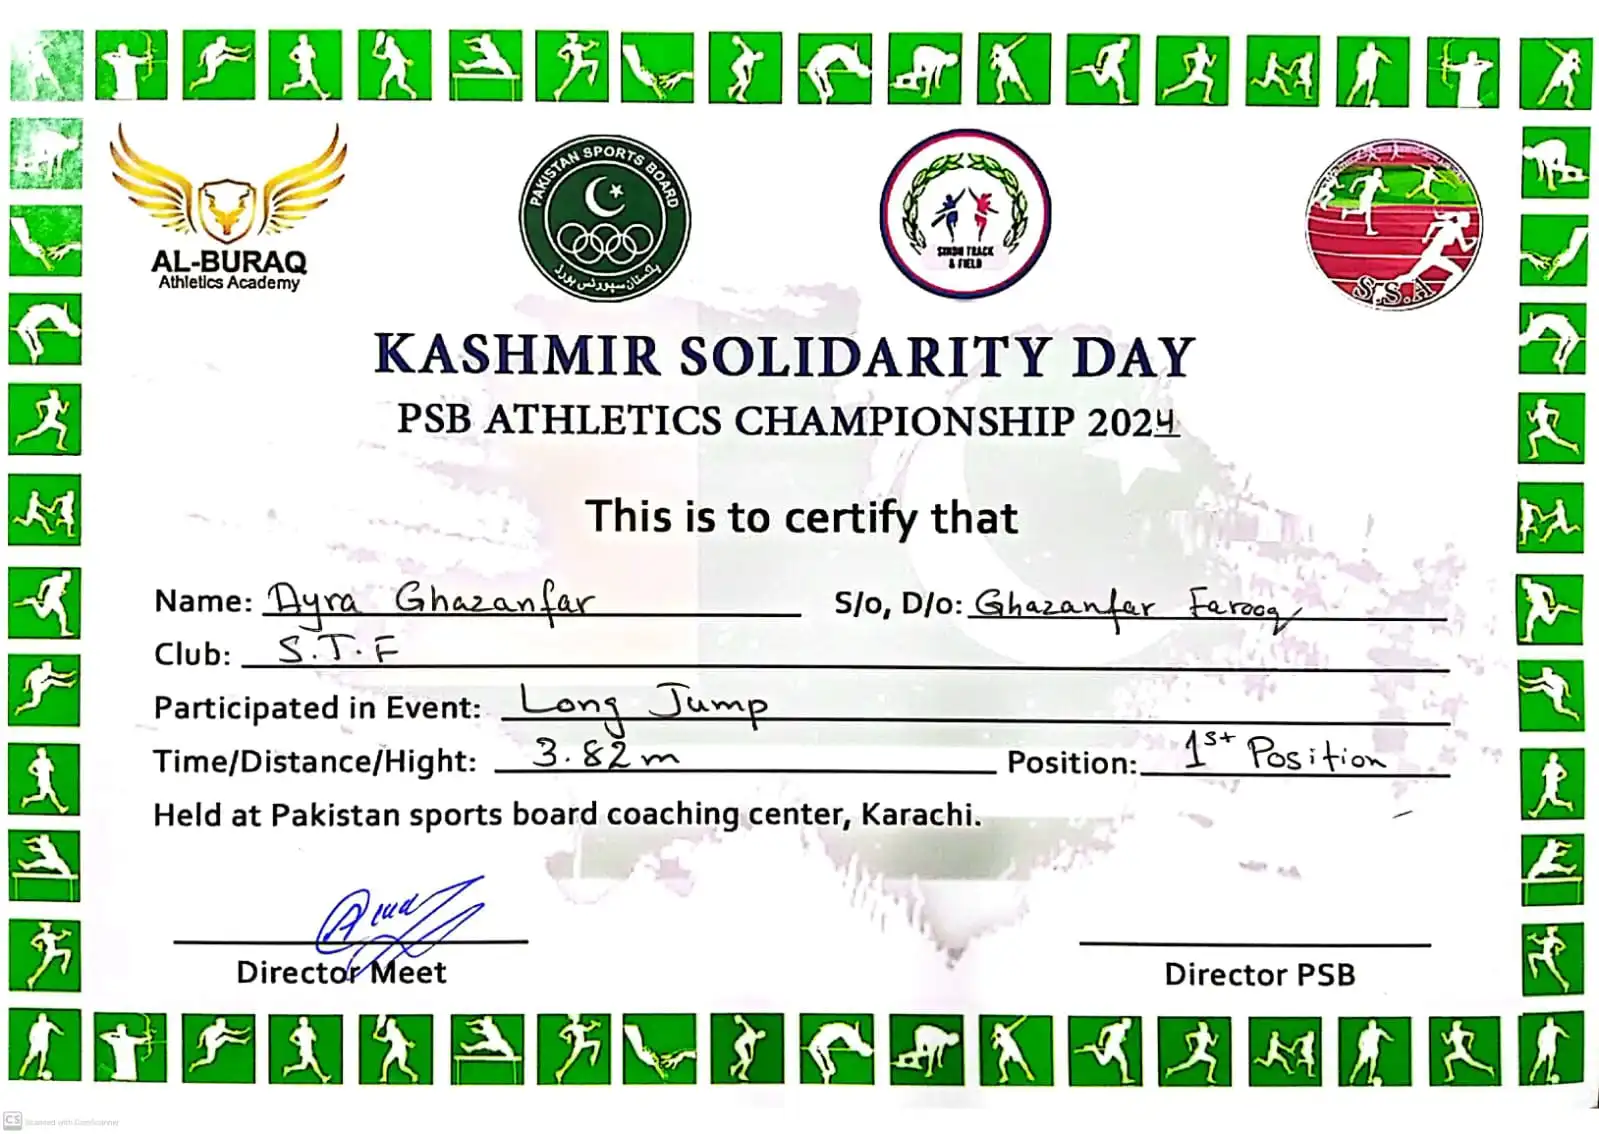 AL-BURAQ
Athletics Academy
PAKISTAN SPORTS BOARD
پاکستان سپورٹس بورڈ
SINDH TRACK
& FIELD
S.S.A
KASHMIR SOLIDARITY DAY
PSB ATHLETICS CHAMPIONSHIP 2024
This is to certify that
Name: Ayra Ghazanfar S/o, D/o: Ghazanfar Farooq
Club: S.T.F
Participated in Event: Long Jump
Time/Distance/Hight: 3.82m Position: 1st Position
Held at Pakistan sports board coaching center, Karachi.
Director Meet Director PSB
CS Scanned with CamScanner